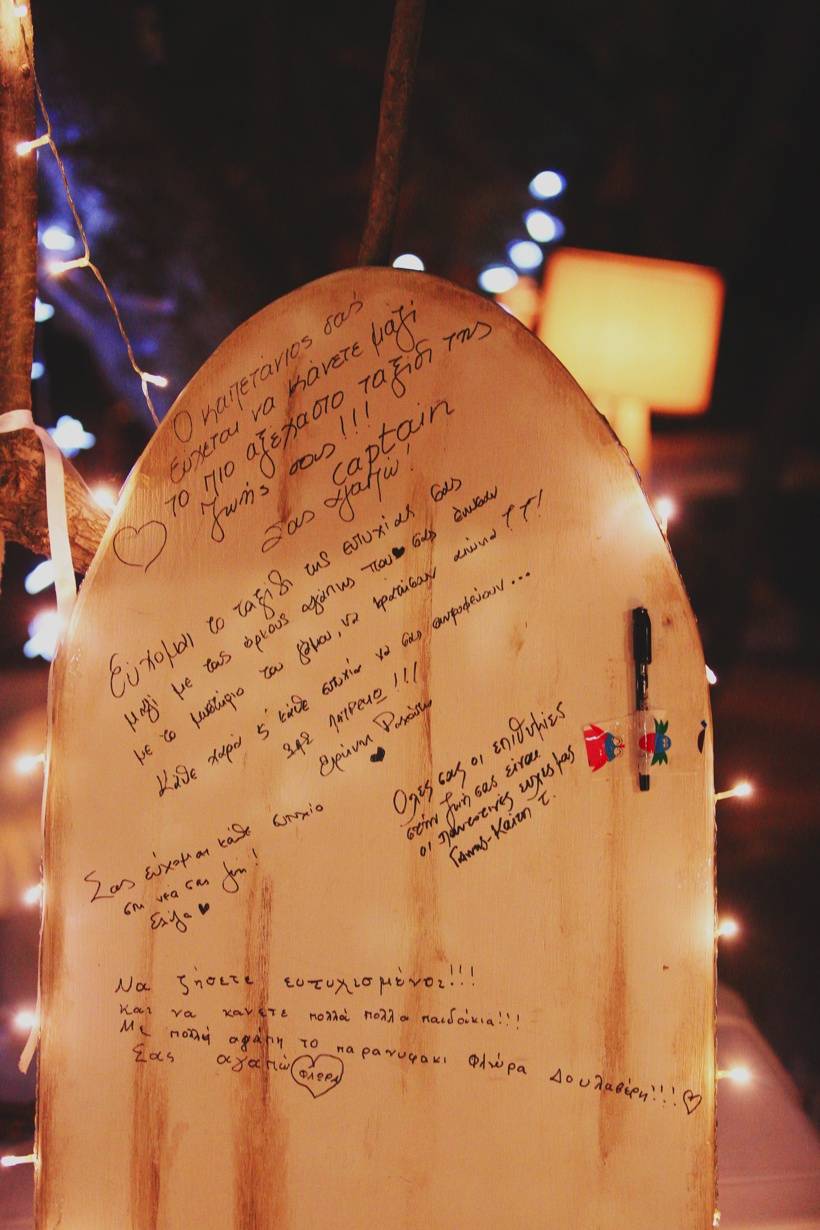 Ο καπετάνιος σας
εύχεται να κάνετε μαζί
το πιο αξέχαστο ταξίδι της
ζωής σας!!!
captain
Σας αγαπώ!
Εύχομαι το ταξίδι της ευτυχίας σας
μαζί με τους όρκους αγάπης που σας έδωσαν
με το μυστήριο του γάμου, να κρατήσουν αιώνια!!!
Κάθε χαρά & κάθε ευτυχία να σας συντροφεύουν...
ΣΑΣ ΛΑΤΡΕΥΩ!!!
Ειρήνη
Όλες σας οι επιθυμίες
στην ζωή σας είναι
οι παντοτινές ευχές μας
Καίτη Τ.
Σας εύχομαι κάθε ευτυχία
στη νέα σας ζωή!
Να ζήσετε ευτυχισμένοι!!!
Και να κανετε πολλά πολλα παιδάκια!!!
Με πολλή αγάπη το παρανυφακι Φλώρα Δουλαβέρη!!!
Σας αγαπώ Φλώρα